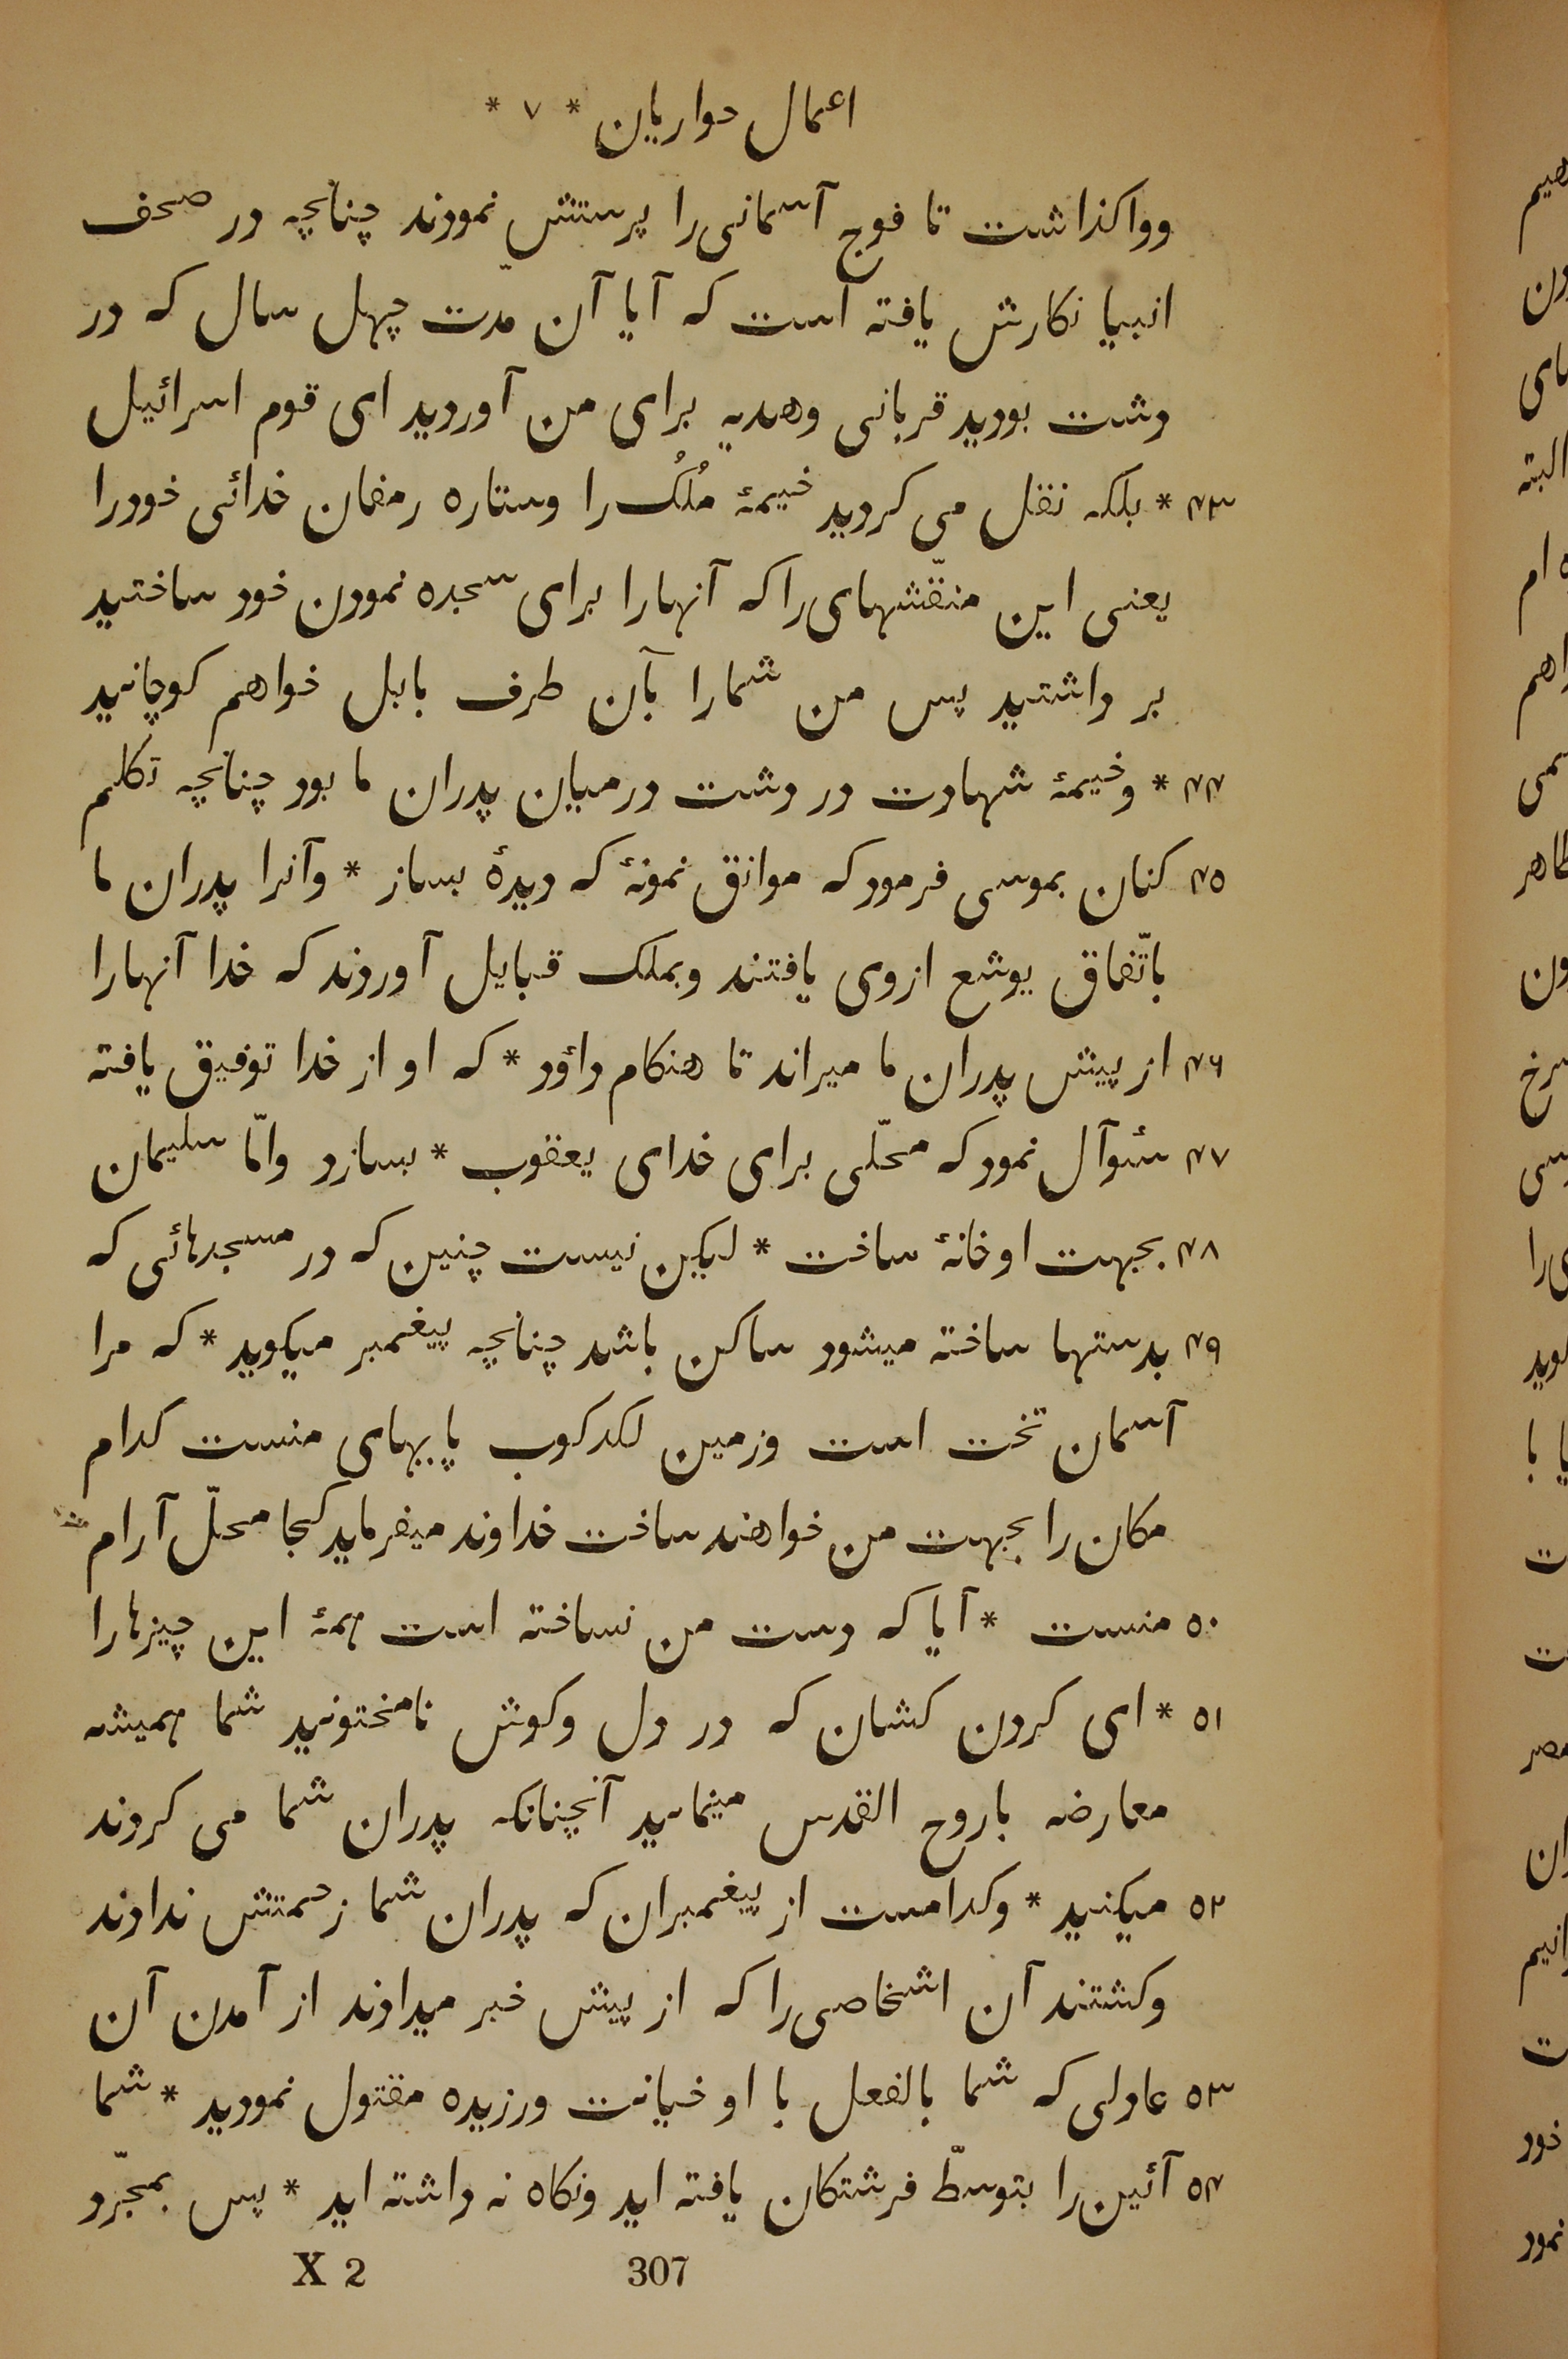 اعمال حواریان * ۷ *
وواکذاشت تا فوج آسمانی را پرستش نمودند چنانچه در صحف
انبیا نکارش یافته است که آیا آن مدّت چهل سال که در
دشت بودید قربانی وهدیه برای من آوردید ای قوم اسرائیل
۴۳ * بلکه نقل می کردید خیمهٔ مُلُک را وستاره رمفان خدائی خودرا
یعنی این منقّشهای را که آنهارا برای سجده نمودن خود ساختید
بر داشتید پس من شمارا بآن طرف بابل خواهم کوچانید
۴۴ * وخیمهٔ شهادت در دشت درمیان پدران ما بود چنانچه تکلم
۴۵ کنان بموسی فرمود که موافق نمونهٔ که دیدهٔ بساز * وآنرا پدران ما
باتّفاق یوشع ازوی یافتند وبملک قبایل آوردند که خدا آنهارا
۴۶ از پیش پدران ما میراند تا هنکام داؤد * که او از خدا توفیق یافته
۴۷ سئوآل نمود که محلّی برای خدای یعقوب * بسازد وامّا سلیمان
۴۸ بجهت او خانهٔ ساخت * لیکن نیست چنین که در مسجدهائی که
۴۹ بدستها ساخته میشود ساکن باشد چنانچه پیغمبر میکوید * که مرا
آسمان تخت است وزمین لکدکوب پایهای منست کدام
مکان را بجهت من خواهند ساخت خداوند میفرماید کجا محلّ آرام
۵۰ منست * آیا که دست من نساخته است همهٔ این چیزهارا
۵۱ * ای کردن کشان که در دل وکوش نامختونید شما همیشه
معارضه باروح القدس مینمائید آنچنانکه پدران شما می کردند
۵۲ میکنید * وکدامست از پیغمبران که پدران شما زحمتش ندادند
وکشتند آن اشخاصی را که از پیش خبر میدادند از آمدن آن
۵۳ عادلی که شما بالفعل با او خیانت ورزیده مقتول نمودید * شما
۵۴ آئین را بتوسّط فرشتکان یافته اید ونکاه نه داشته اید * پس بمجرّد
307 X 2